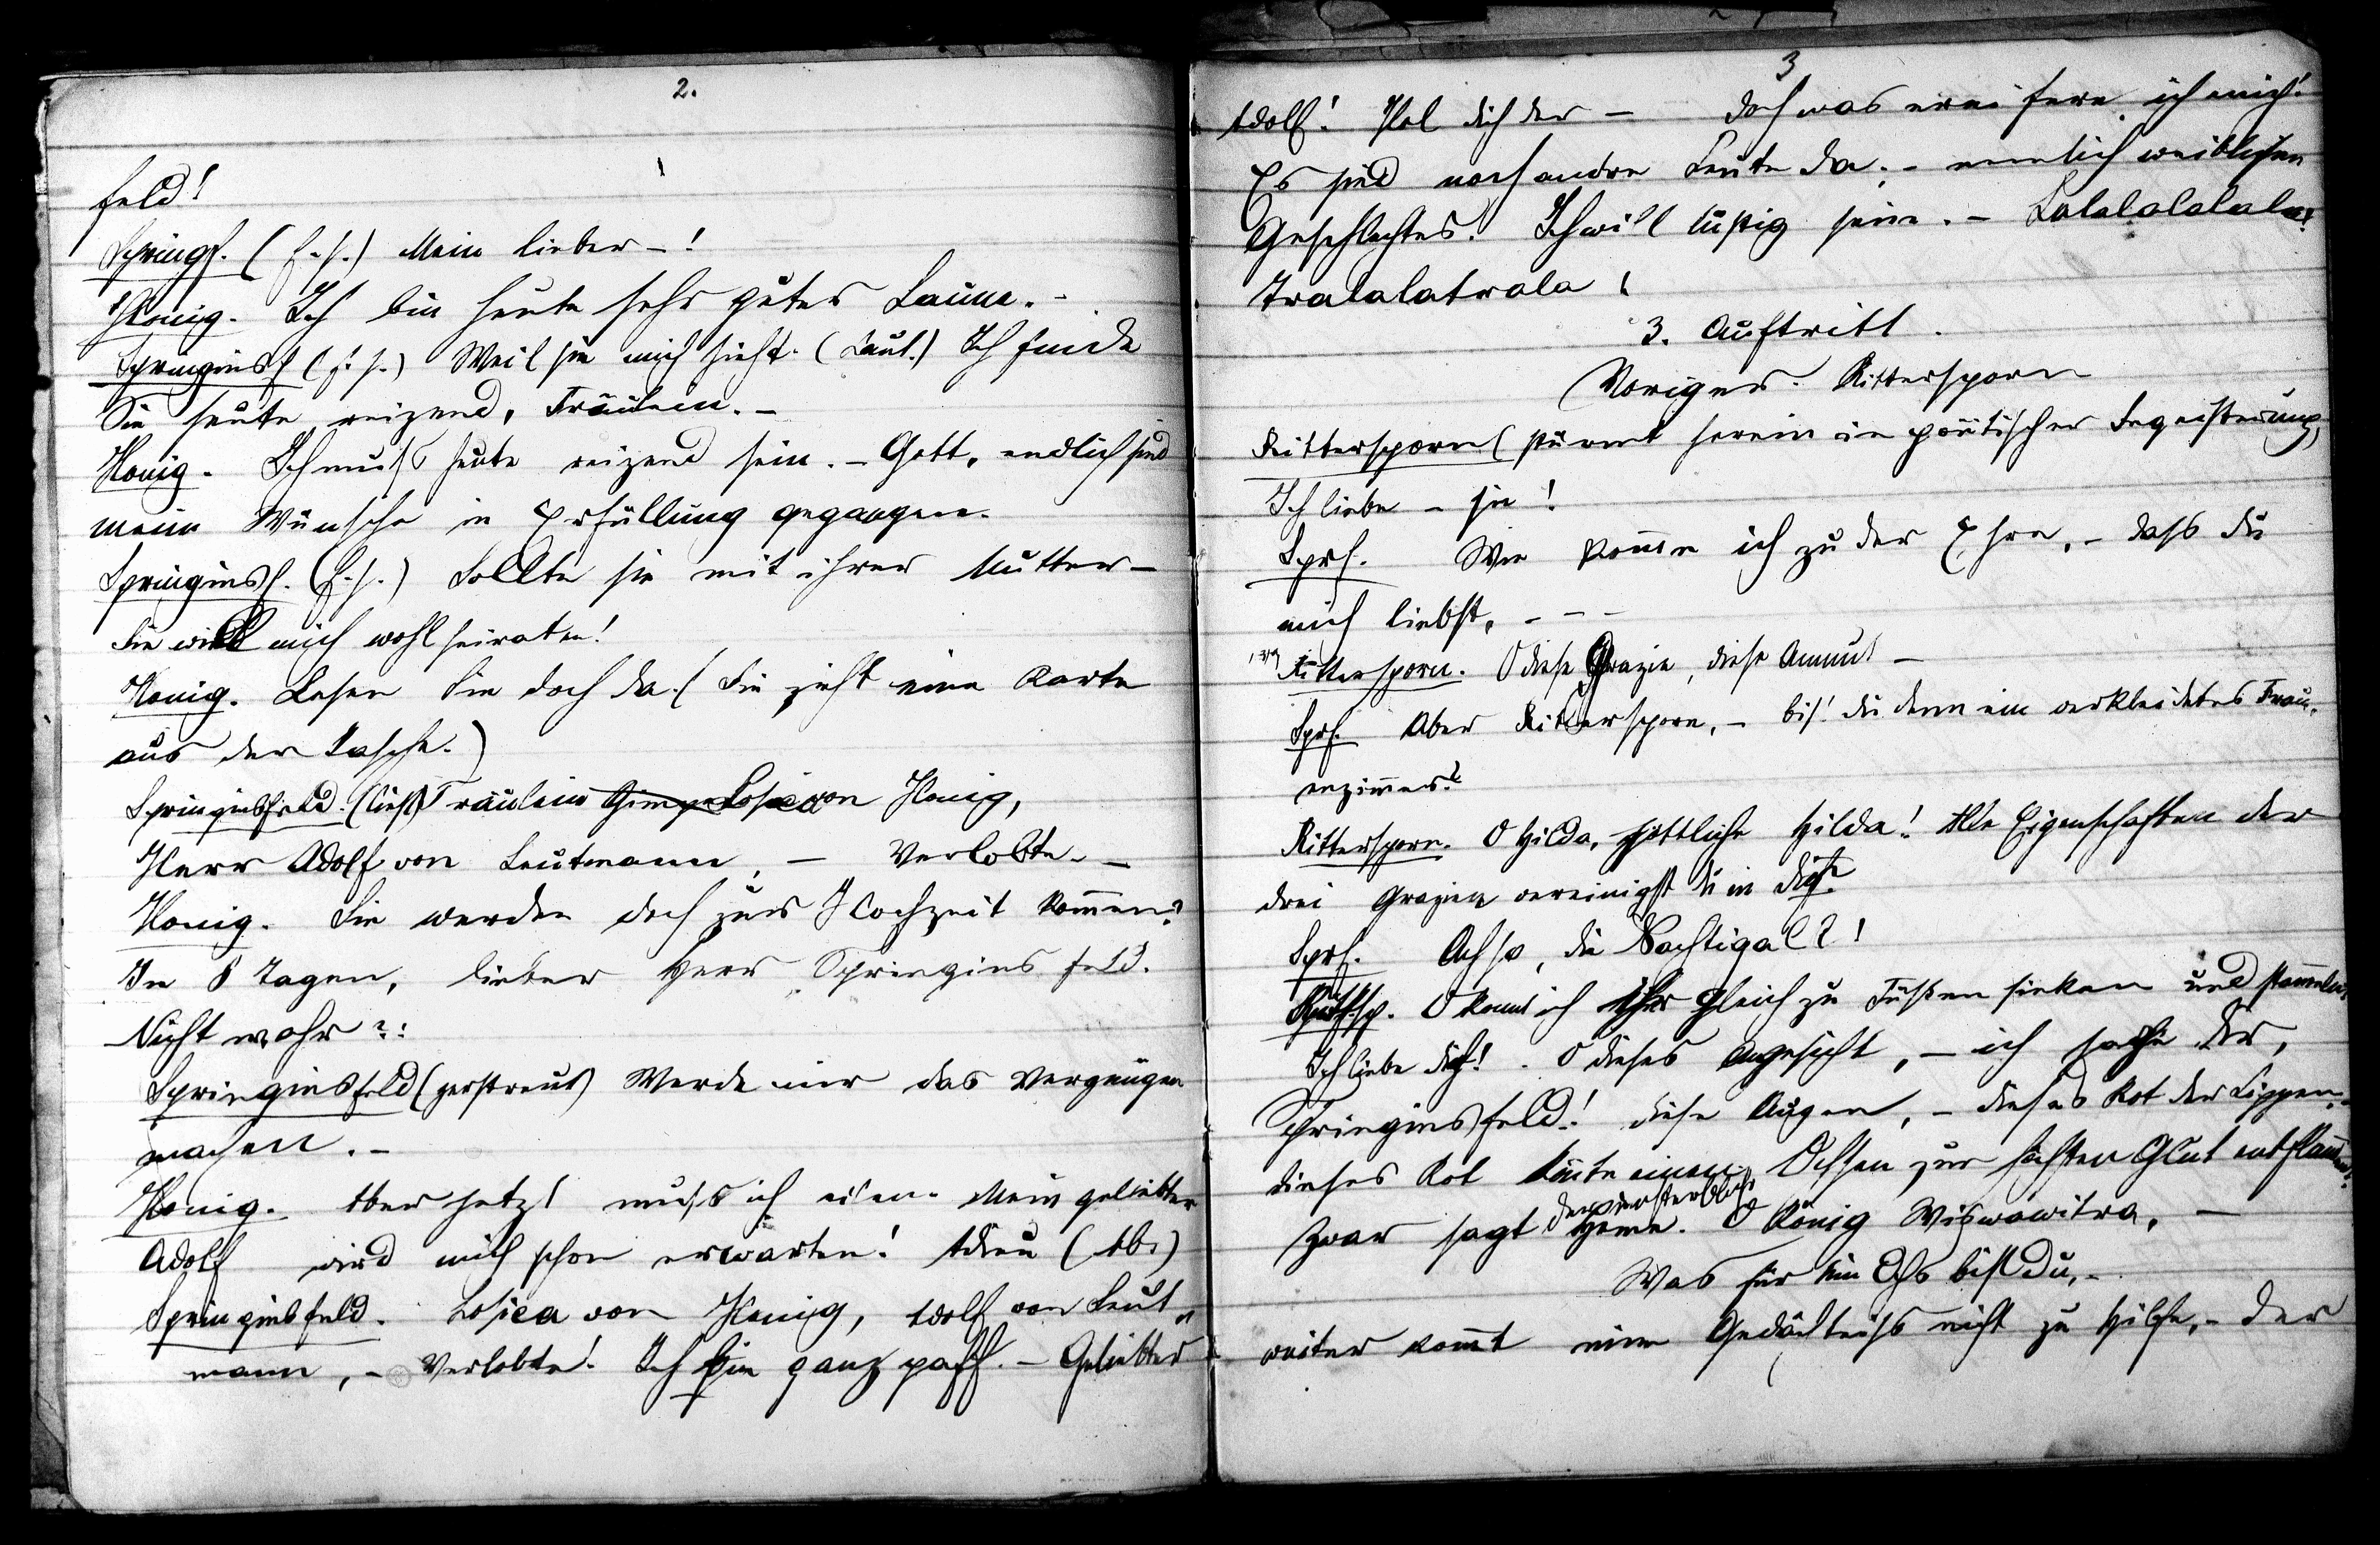 2.
feld!
Springf. (f. s.) Mein lieber -!
Honig. Ich bin heute sehr guter Laune. -
Springinsf (f. s.) Weil sie mich sieht. (Laut.) Ich finde
Sie heute reizend, Fräulein. -
Honig. Ich muss heute reizend sein. - Gott, endlich sind
meine Wünsche in Erfüllung gegangen.
Springinsf. (f. s.) Sollte sie mit ihrer Mutter -
Sie will mich wohl heiraten!
Honig. Lesen Sie doch da. (Sie zieht eine Karte
aus der Tasche.)
Springinsfeld. (liest) Fräulein von Honig,
Herr Adolf von Leutmann, - Verlobte. -
Honig. Sie werden doch zur Hochzeit kommen?
In 8 Tagen, lieber Herr Springinsfeld.
Nicht wahr?!
Springinsfeld (zerstreut) Werde mir das Vergnügen
machen. -
Honig. Aber jetzt muss ich eilen. Mein geliebter
Adolf wird mich schon erwarten! Adieu (Ab.)
Springinsfeld. von Honig, Adolf von Leut„
mann, - Verlobte! Ich bin ganz paff. - Geliebter
3
Adolf! Hol dich der - doch was ereifere ich mich!
Es sind noch andre Leute da. - nemlich weiblichen
Geschlechtes. Ich will lustig sein. - Lalalalalala!
Tralalatrala!
3. Auftritt.
Voriger. Rittersporn
Rittersporn (stürmt herein in poëtischer Begeisterung)
Ich liebe - sie!
Sprf. Wie komme ich zu der Ehre, - dass du
mich liebst, - - -
Rittersporn. O diese Grazie, diese Anmut -
Sprf. Aber Rittersporn, - bist du denn ein verkleidetes Frau„
enzimmer?
Rittersporn. O Hilda, göttliche Hilda! Alle Eigenschaften der
drei Grazien vereinigst du in dir.
Sprf. Ach so, die Nachtigal?!
Rittsp. O könnt ich ihr gleich zu Füssen sinken und stammeln,
Ich liebe dich! - O dieses Angesicht, - ich sage dir,
Springinsfeld! diese Augen, - dieses Rot der Lippen, -
dieses Rot könnte einen Ochsen zur höchsten Glut entflammen!
Zwar sagt der unsterbliche Heine. O König Wiswamitra, -
Was für ein Ochs bist du, -
weiter kommt mir Gedächtniss nicht zu Hilfe, - der